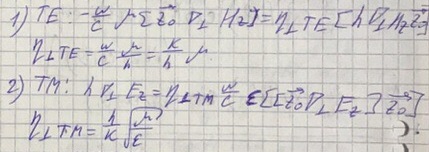 1) TE: -w/c μ[z⃗₀ ∇⊥ Hz] = η⊥TE [h ∇⊥Hz z⃗₀]
η⊥TE = w/c μ/h = k/h μ.
2) TM: h ∇⊥ Ez = η⊥TM w/c ε[[z⃗₀ ∇⊥ Ez] z⃗₀]
η⊥TM = h/k √μ/ε